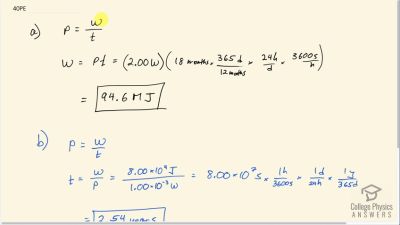 40PE
a) P = W/t
W = Pt = (2.00 W)(18 months × 365d/12 months × 24h/d × 3600s/h)
= 94.6 MJ
b) P = W/t
t = W/P = 8.00×10⁴J/1.00×10⁻³W = 8.00×10⁷s × 1h/3600s × 1d/24h × 1y/365d
= 2.54 years
College Physics
ANSWERS